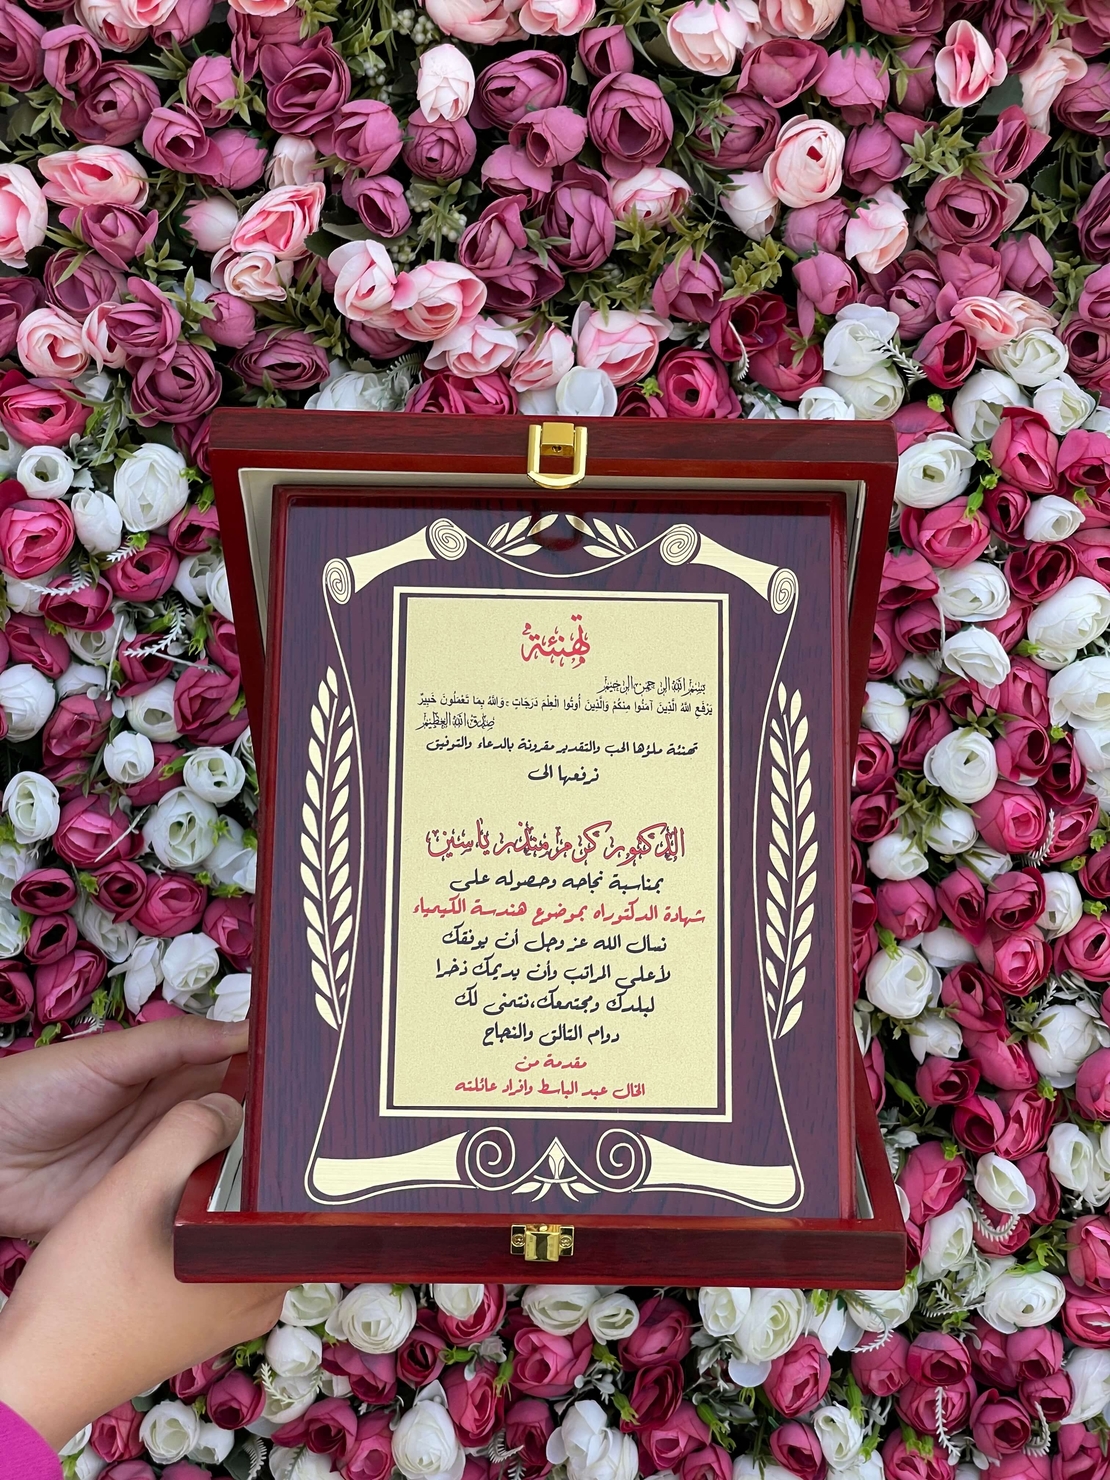 تهنئة
بسم الله الرحمن الرحيم
يَرْفَعِ اللَّهُ الَّذِينَ آمَنُوا مِنكُمْ وَالَّذِينَ أُوتُوا الْعِلْمَ دَرَجَاتٍ ۚ وَاللَّهُ بِمَا تَعْمَلُونَ خَبِيرٌ
صدق الله العظيم
تهنئة ملؤها الحب والتقدير مقرونة بالدعاء والتوفيق
نرفعها الى
الدكتور كرم منذر ياسين
بمناسبة نجاحه وحصوله على
شهادة الدكتوراه بموضوع هندسة الكيمياء
نسال الله عز وجل أن يوفقك
لأعلى المراتب وأن يديمك ذخرا
لبلدك ومجتمعك،نتمنى لك
دوام التالق والنجاح
مقدمة من
الخال عبد الباسط وافراد عائلته